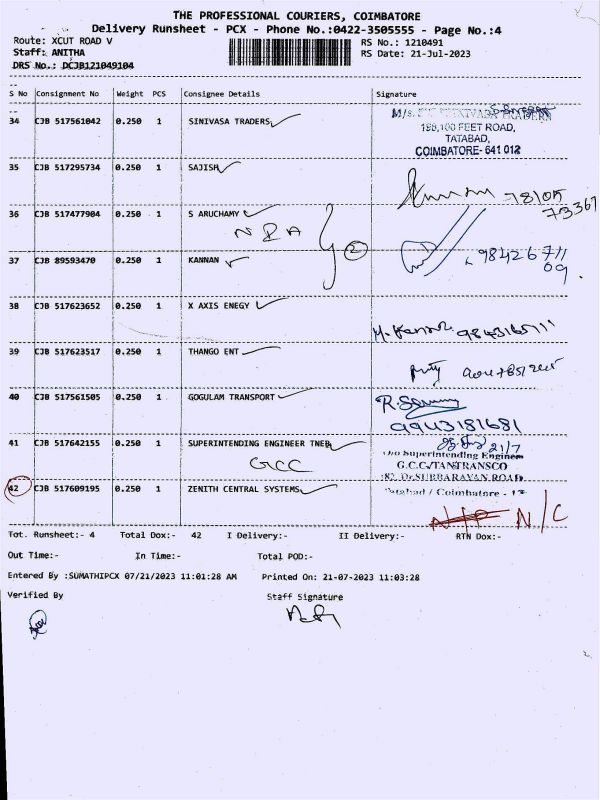 THE PROFESSIONAL COURIERS, COIMBATORE
Delivery Runsheet - PCX - Phone No.:0422-3505555 - Page No.:4
Route: XCUT ROAD V RS No.: 1210491
Staff: ANITHA RS Date: 21-Jul-2023
DRS No.: DCJB121049104
S No Consignment No Weight PCS Consignee Details Signature
34 CJB 517561042 0.250 1 SINIVASA TRADERS
TRADERS
100 FEET ROAD,
TATABAD,
COIMBATORE- 641 012
35 CJB 517295734 0.250 1 SAJISH
36 CJB 517477904 0.250 1 S ARUCHAMY
2
37 CJB 89593470 0.250 1 KANNAN
98426711
09
38 CJB 517623652 0.250 1 X AXIS ENEGY
39 CJB 517623517 0.250 1 THANGO ENT
40 CJB 517561505 0.250 1 GOGULAM TRANSPORT
9943181681
41 CJB 517642155 0.250 1 SUPERINTENDING ENGINEER TNEB
GCC
21/7
Superintending Engineer
G.C.C/TANTRANSCO
SUBBARAYAN ROAD
Tatabad / Coimbatore - 12
42 CJB 517609195 0.250 1 ZENITH CENTRAL SYSTEMS
N/C
Tot. Runsheet:- 4 Total Dox:- 42 I Delivery:- II Delivery:- RTN Dox:-
Out Time:- In Time:- Total POD:-
Entered By :SUMATHIPCX 07/21/2023 11:01:28 AM Printed On: 21-07-2023 11:03:28
Verified By Staff Signature